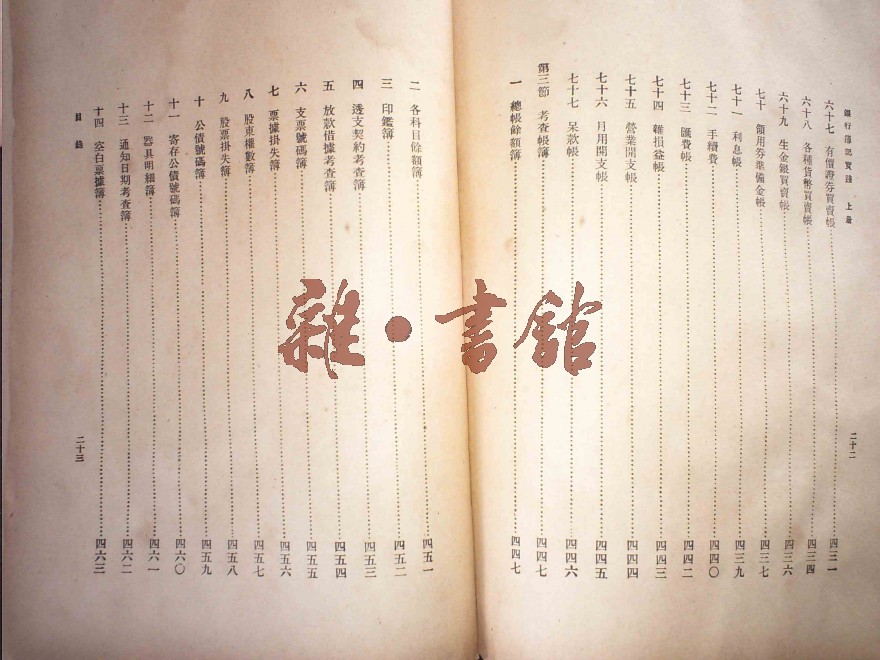 銀行簿記實踐 上册
六十七 有價證券買賣帳 四三一
六十八 各種貨幣買賣帳 四三四
六十九 生金銀買賣帳 四三六
七十 領用券準備金帳 四三七
七十一 利息帳 四三九
七十二 手續費 四四〇
七十三 匯費帳 四四二
七十四 雜損益帳 四四三
七十五 營業開支帳 四四四
七十六 月用開支帳 四四五
七十七 呆款帳 四四六
第三節 考查帳簿 四四七
一 總帳餘額簿 四四七
二十二
二 各科目餘額簿 四五一
三 印鑑簿 四五二
四 透支契約考查簿 四五三
五 放款借據考查簿 四五四
六 支票號碼簿 四五五
七 票據掛失簿 四五六
八 股東權數簿 四五七
九 股票掛失簿 四五八
十 公債號碼簿 四五九
十一 寄存公債號碼簿 四六〇
十二 器具明細簿 四六一
十三 通知日期考查簿 四六二
十四 空白票據簿 四六三
目錄
二十三
雜·書館